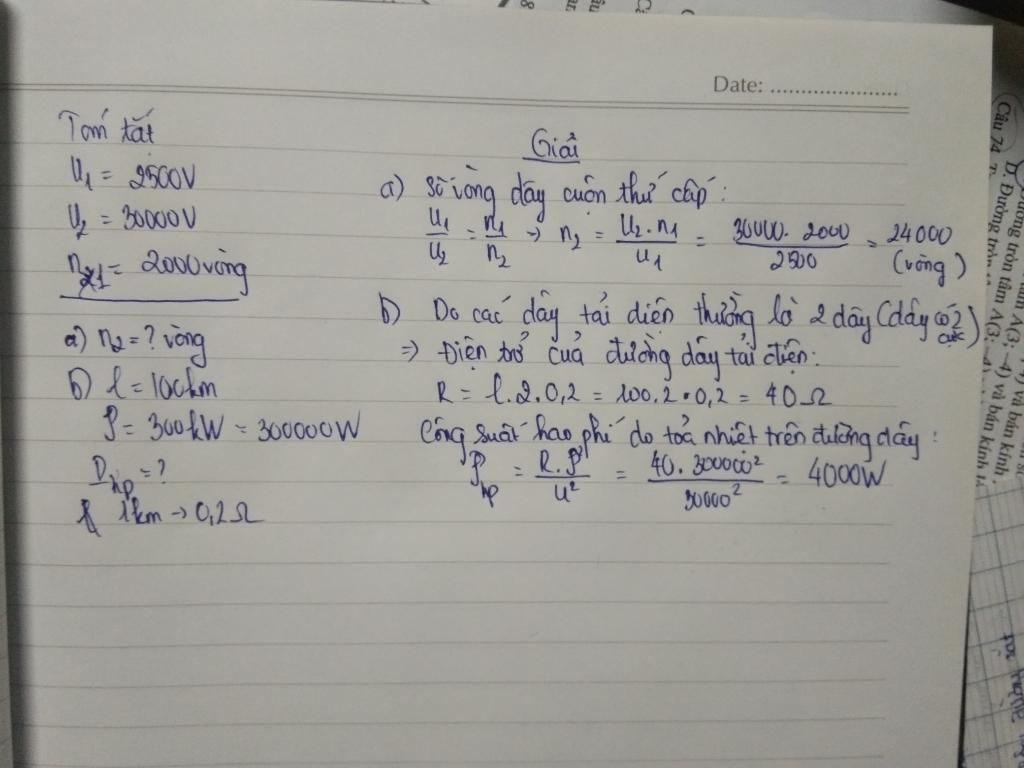 Date: ......................
Tóm tắt
U1 = 2500V
U2 = 30000V
n1 = 2000 vòng
a) n2 = ? vòng
b) l = 100km
P = 300kW = 300000W
Php = ?
1km → 0,2Ω
Giải
a) Số vòng dây cuộn thứ cấp:
U1/U2 = n1/n2 → n2 = U2.n1/U1 = 30000.2000/2500 = 24000 (vòng)
b) Do các dây tải điện thường là 2 dây (dây có 2 cực)
=> Điện trở của đường dây tải điện:
R = l.2.0,2 = 100.2.0,2 = 40Ω
Công suất hao phí do toả nhiệt trên đường dây:
Php = R.P²/U² = 40.300000²/30000² = 4000W
Câu 74